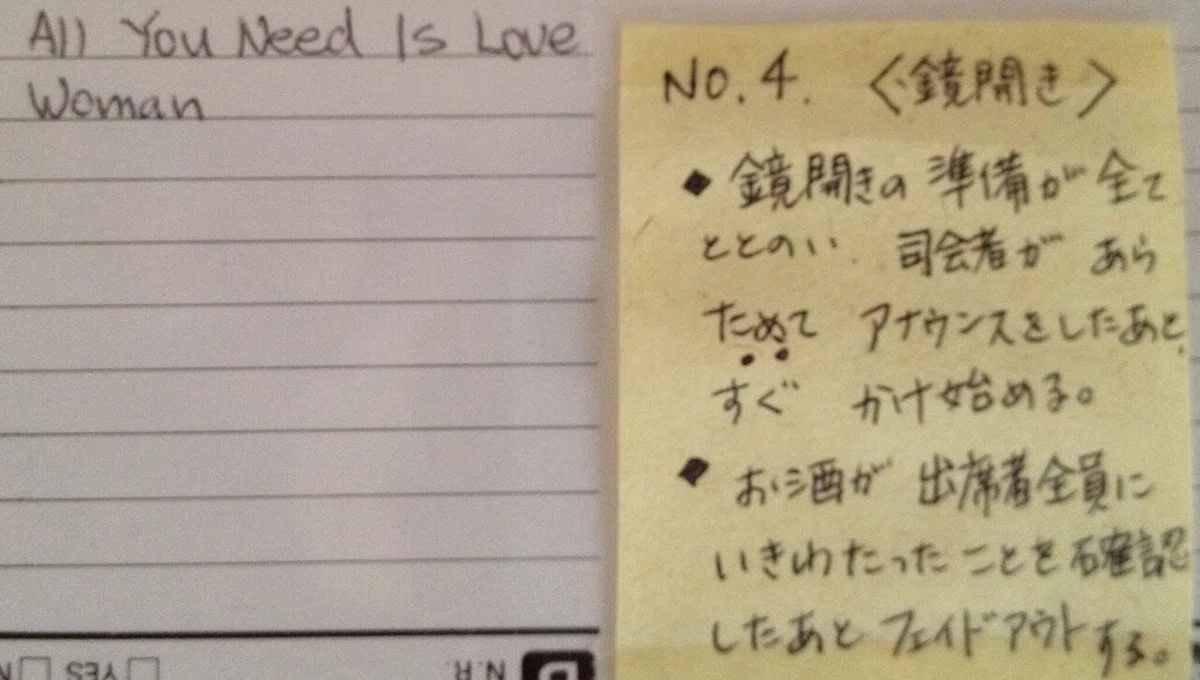 All You Need Is Love
Woman
No.4. <鏡開き>
◆ 鏡開きの 準備が 全て
ととのい. 司会者が あら
ためて アナウンスをしたあと,
すぐ かけ始める。
◆ お酒が 出席者全員に
いきわたったことを確認
したあと フェイドアウトする。
YES
N.R.